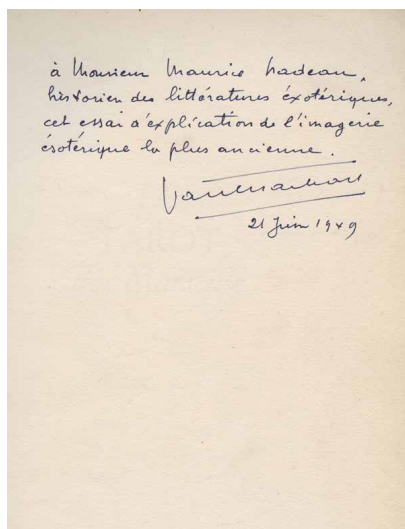 à Monsieur Maurice Nadeau,
historien des littératures éxotériques,
cet essai d'explication de l'imagerie
ésotérique la plus ancienne.
Paul Marteau
21 Juin 1949